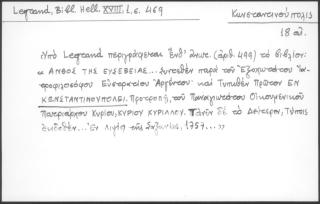 Legrand, Bibl. Hell. XVIII. I, σ. 469
Κωνσταντινούπολις
18 αἰ.
Ὑπὸ Legrand περιγράφεται ἔνθ' ἀνωτ. (ἀρ. 499) τὸ βιβλίον:
« ΑΝΘΟΣ ΤΗΣ ΕΥΣΕΒΕΙΑΣ... Συντεθὲν παρὰ τοῦ Ἐξοχωτάτου Ἰα-
τροφιλοσόφου Εὐστρατίου Ἀργέντου: καὶ Τυπωθὲν Πρῶτον ΕΝ
ΚΩΝΣΤΑΝΤΙΝΟΥΠΟΛΕΙ. Προτροπῇ, τοῦ Παναγιωτάτου Οἰκουμενικοῦ
Πατριάρχου Κυρίου, ΚΥΡΙΟΥ ΚΥΡΙΛΛΟΥ. Τανῦν δὲ τὸ Δεύτερον, Τύποις
ἐκδοθὲν... Ἐν Λειψίᾳ τῆς Σαξωνίας, 1757...»